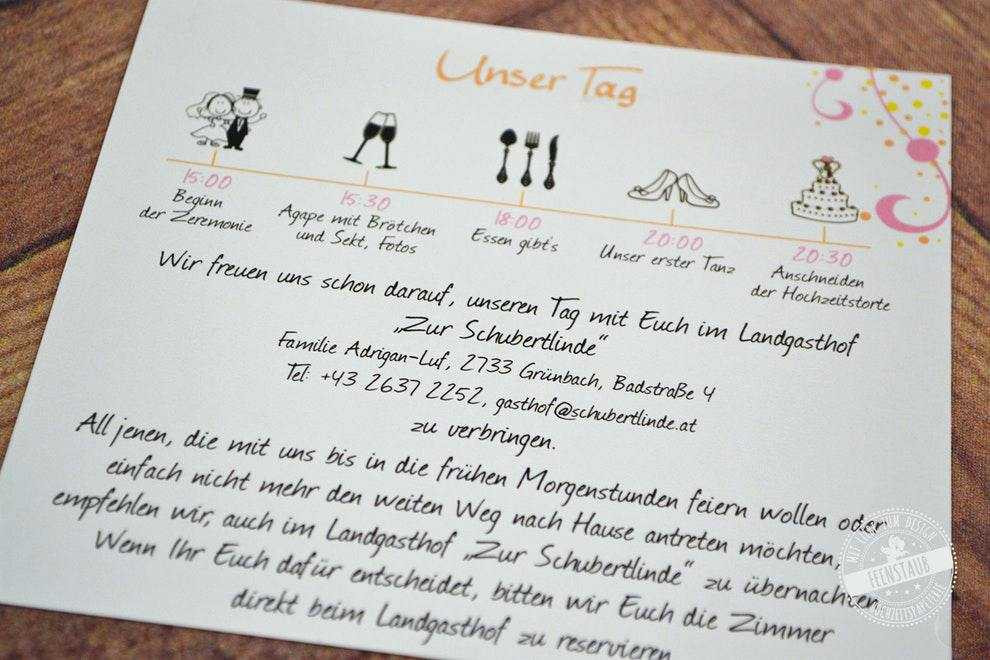 Unser Tag
15:00
Beginn
der Zeremonie
15:30
Agape mit Brötchen
und Sekt, Fotos
18:00
Essen gibt's
20:00
Unser erster Tanz
20:30
Anschneiden
der Hochzeitstorte
Wir freuen uns schon darauf, unseren Tag mit Euch im Landgasthof
„Zur Schubertlinde“
Familie Adrigan-Luf, 2733 Grünbach, Badstraße 4
Tel: +43 2637 2252, gasthof@schubertlinde.at
zu verbringen.
All jenen, die mit uns bis in die frühen Morgenstunden feiern wollen oder
einfach nicht mehr den weiten Weg nach Hause antreten möchten,
empfehlen wir, auch im Landgasthof „Zur Schubertlinde“ zu übernachten.
Wenn Ihr Euch dafür entscheidet, bitten wir Euch die Zimmer
direkt beim Landgasthof zu reservieren
FEENSTAUB